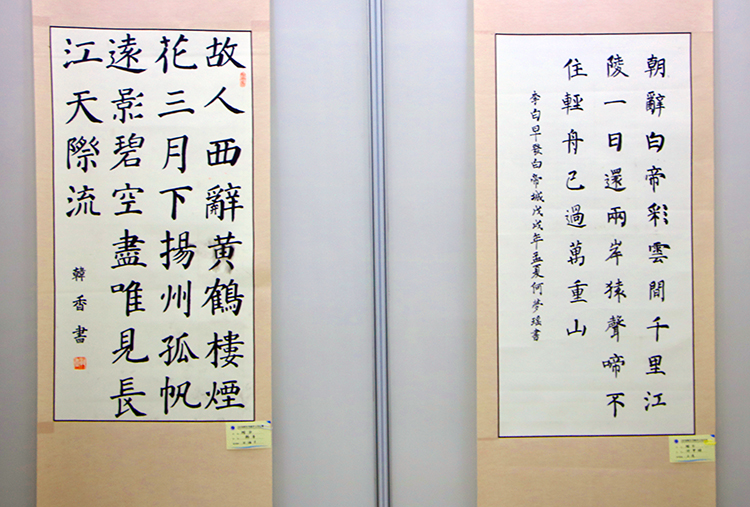 故人西辭黄鶴樓煙
花三月下揚州孤帆
遠影碧空盡唯見長
江天際流
韓香書
朝辭白帝彩雲間千里江
陵一日還兩岸猿聲啼不
住輕舟已過萬重山
李白早發白帝城戊戌年孟夏何夢瑶書